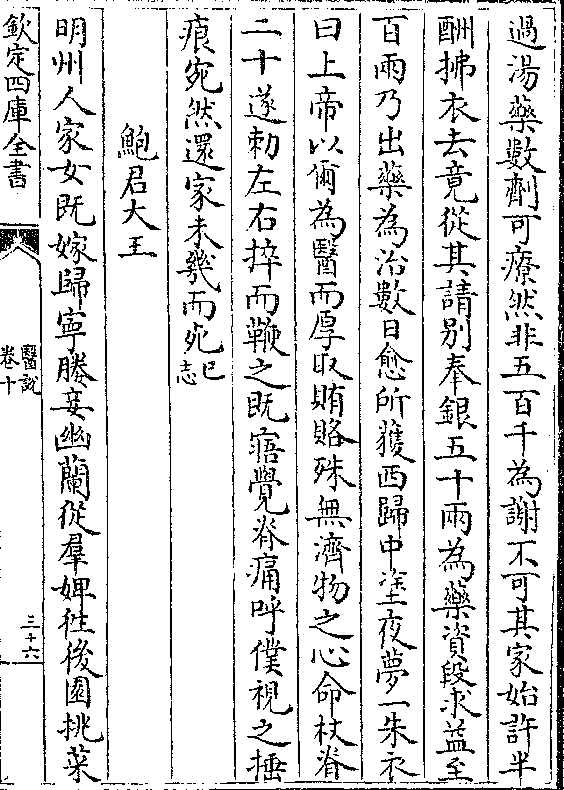 過湯藥數劑可療然非五百千為謝不可其家始許半
酬拂衣去竟從其請别奉銀五十兩為藥資段求益至
百兩乃出藥為治數日愈所獲西歸中塗夜夢一朱衣
曰上帝以爾為醫而厚取賄賂殊無濟物之心命杖脊
二十遂勅左右捽而鞭之既寤覺脊痛呼僕視之捶
痕宛然還家未幾而死己志
鮑君大王
明州人家女既嫁歸寧媵妾幽蘭從羣婢徃後園挑菜
欽定四庫全書
醫説
卷十
三十六